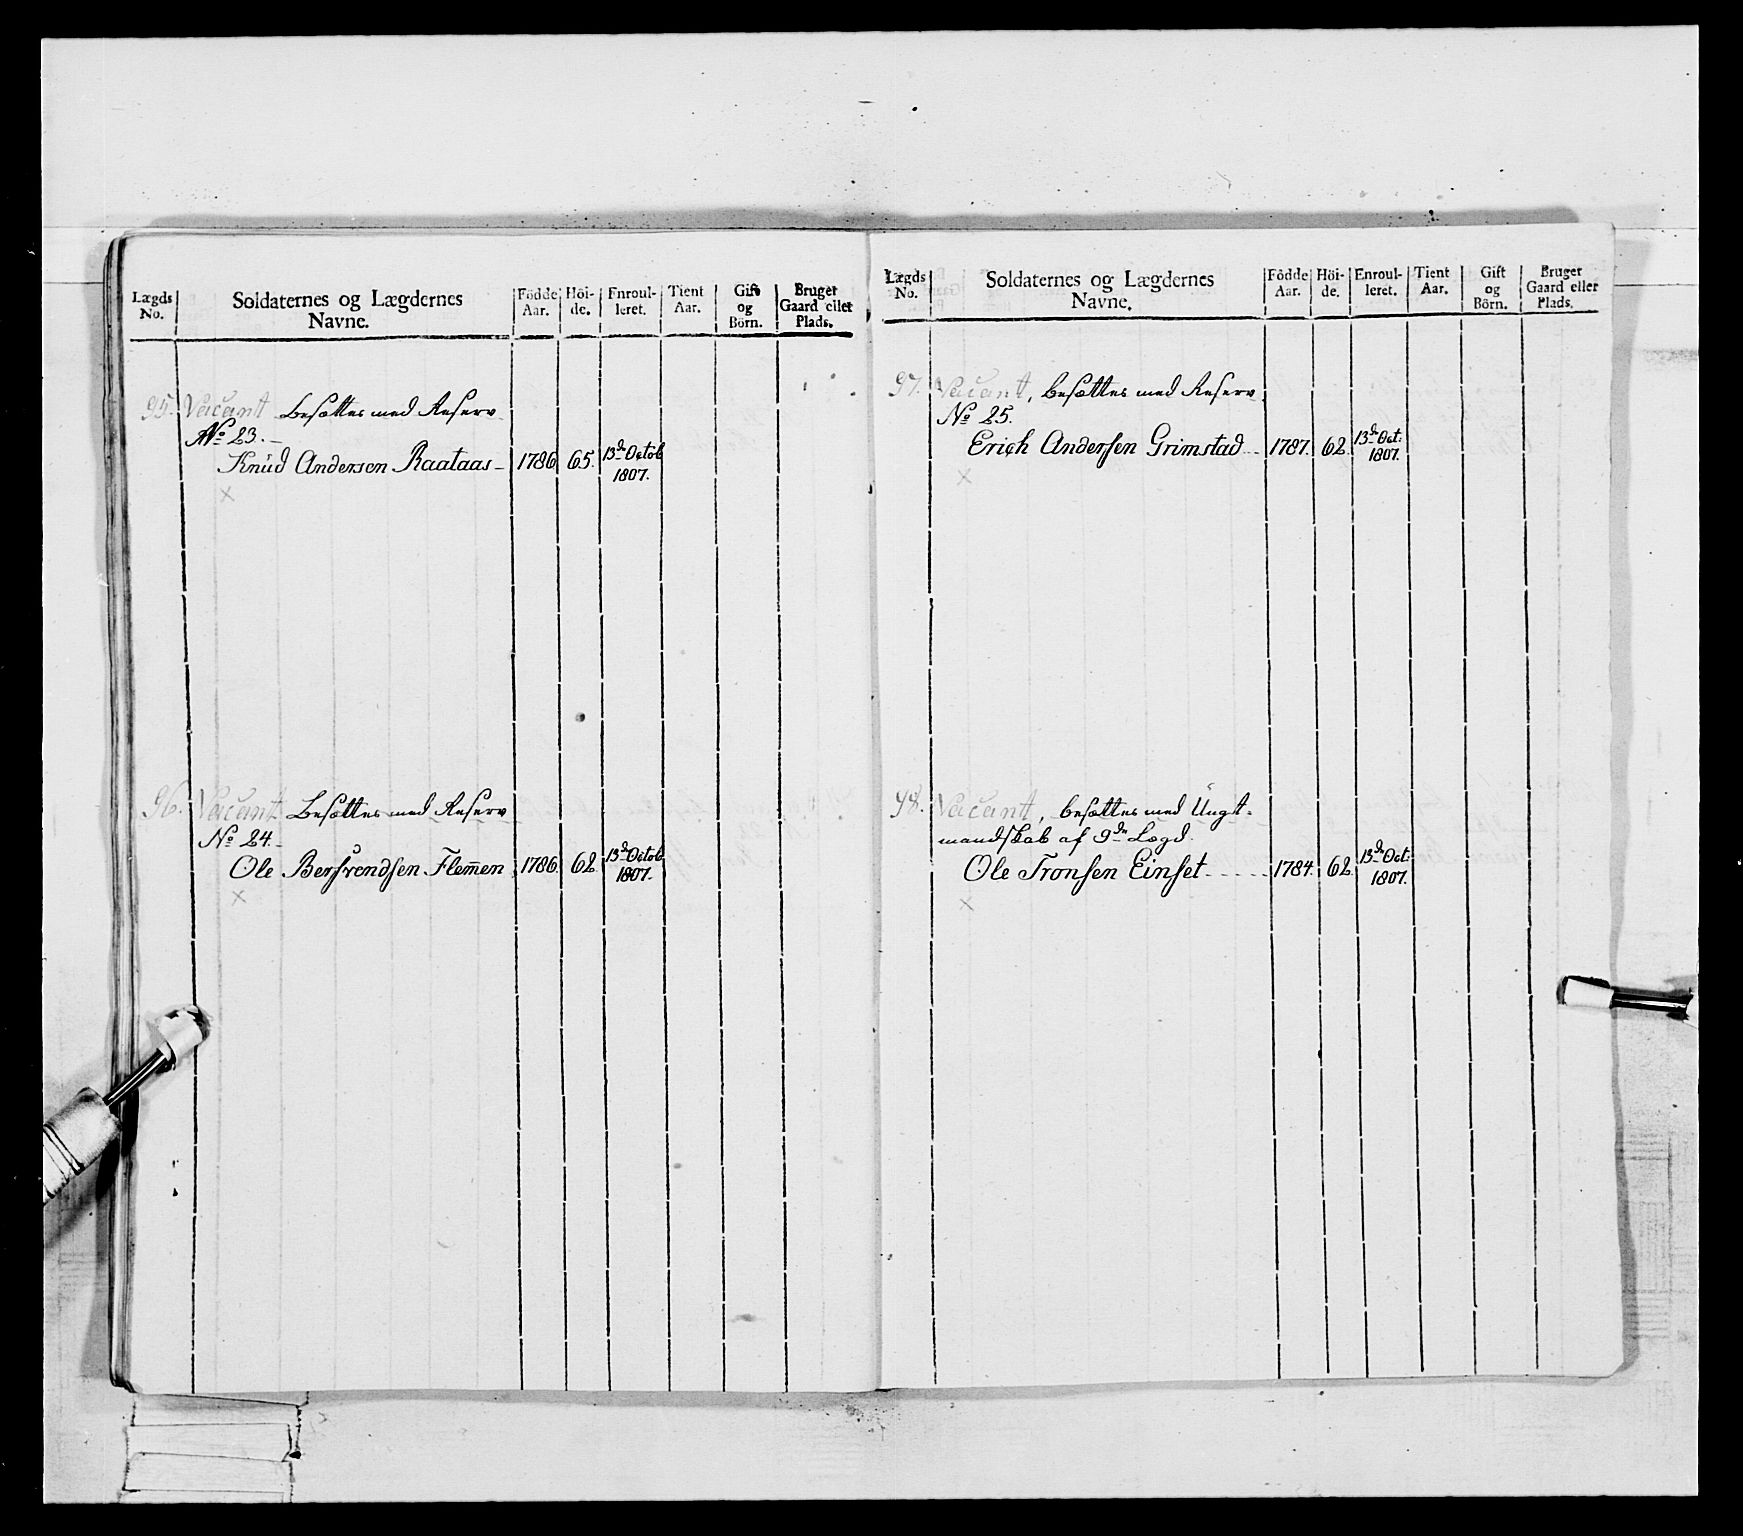 Lægds No. | Soldaternes og Lægdernes Navne. | Födde Aar. | Höi- de. | Enroul- leret. | Tient Aar. | Gift og Börn. | Bruger Gaard eller Plads.
95. Vacant Besættes med Reserv
No 23.
Knud Andersen Raataas 1786 65. 13de Octob 1807.
×
96. Vacant Besættes med Reserv
No 24.
Ole Flem̅en 1786. 62. 13de Octob 1807.
×
Lægds No. | Soldaternes og Lægdernes Navne. | Födde Aar. | Höi- de. | Enroul- leret. | Tient Aar. | Gift og Börn. | Bruger Gaard eller Plads.
97. Vacant, besættes med Reserv.
No 25.
Erich Andersen Grimstad 1787. 62. 13de Oct: 1807.
×
98. Vacant, besættes med Ungt-
mandskab af 9de Lægd.
Ole Tronsen Einset 1784. 62. 13de Oct: 1807.
×